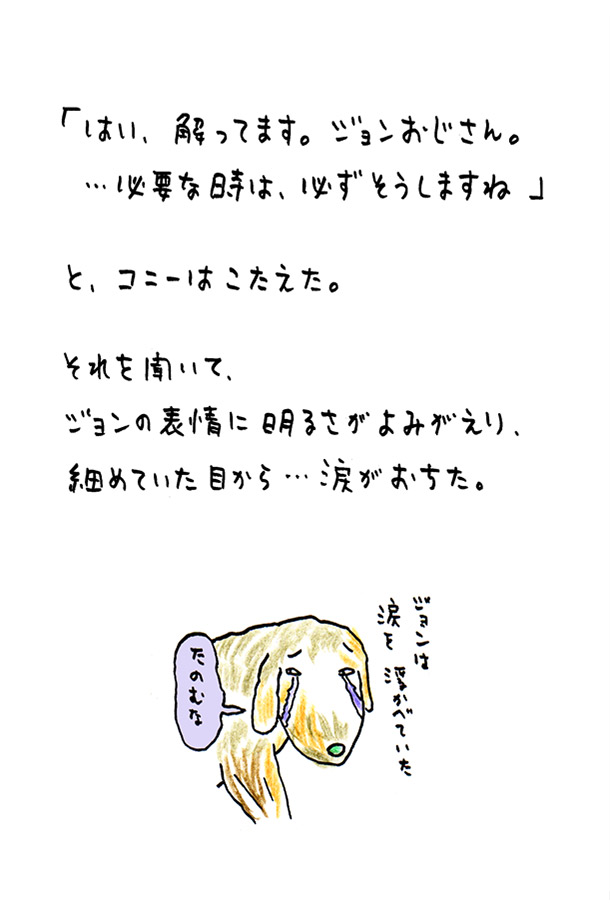 「はい、解ってます。ジョンおじさん。
…必要な時は、必ずそうしますね」
と、コニーはこたえた。
それを聞いて、
ジョンの表情に明るさがよみがえり、
細めていた目から…涙がおちた。
ジョンは
涙を浮かべていた
たのむな